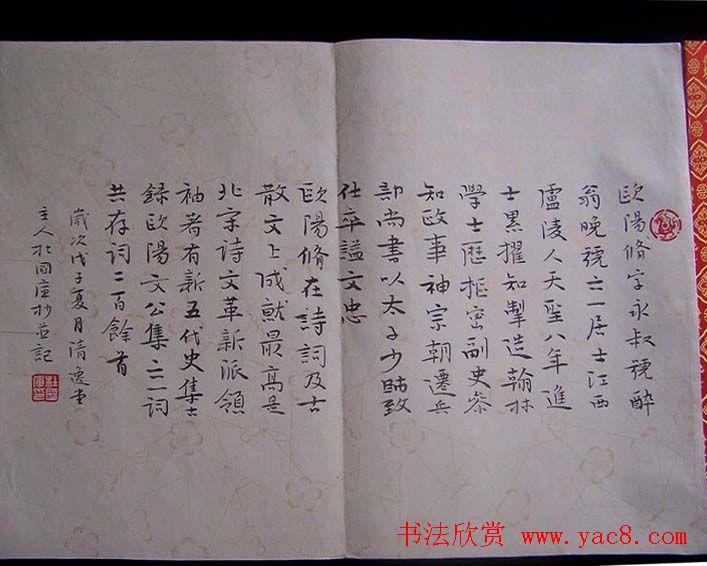 歐陽脩字永叔號醉
翁晚號六一居士江西
廬陵人天聖八年進
士累擢知掣造翰林
學士歷樞密副史參
知政事神宗朝遷兵
部尚書以太子少師致
仕卒謚文忠
歐陽脩在詩詞及古
散文上成就最高是
北宋詩文革新派領
袖著有新五代史集古
錄歐陽文公集六一詞
共存詞二百餘首
歲次戊子夏月清逸堂
主人杜國庫抄並記
书法欣赏 www.yac8.com